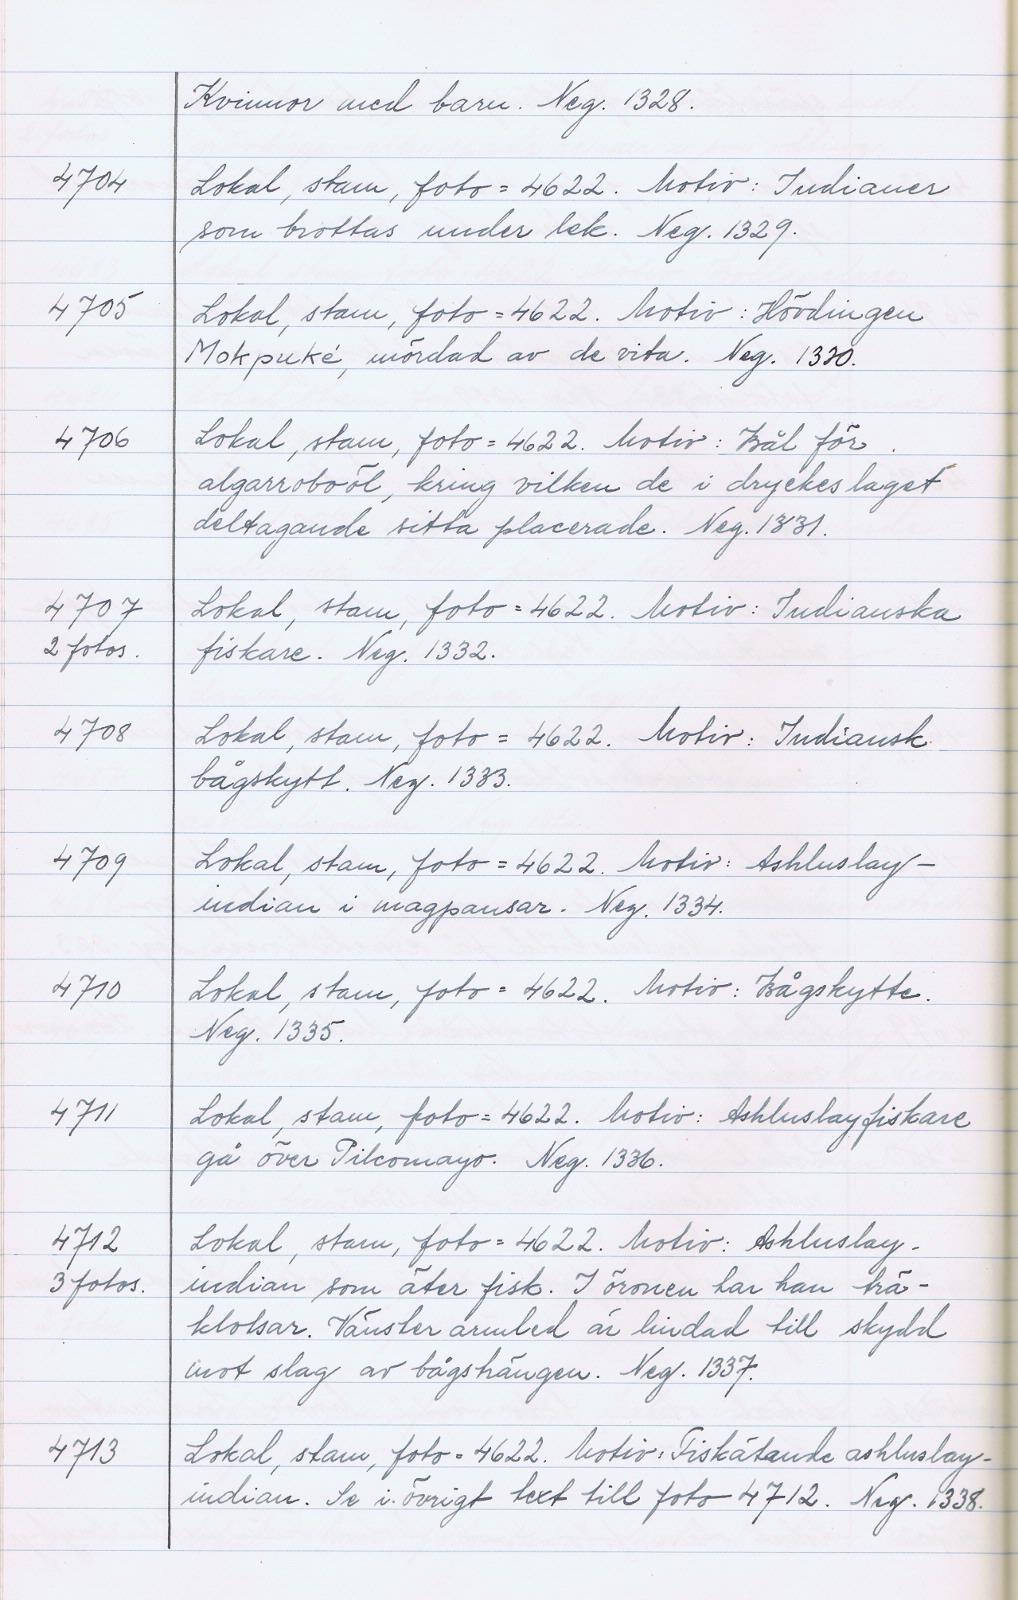 Kvinnor med barn. Neg. 1328.
4704 Lokal, stam, foto = 4622. Motiv: Indianer
som brottas under lek. Neg. 1329.
4705 Lokal, stam, foto = 4622. Motiv: Hövdingen
Mokpuké, mördad av de vita. Neg. 1330.
4706 Lokal, stam, foto = 4622. Motiv: Bål för
algarroboöl, kring vilken de i dryckeslaget
deltagande sitta placerade. Neg. 1331.
4707 Lokal, stam, foto = 4622. Motiv: Indianska
2 fotos. fiskare. Neg. 1332.
4708 Lokal, stam, foto = 4622. Motiv: Indiansk
bågskytt. Neg. 1333.
4709 Lokal, stam, foto = 4622. Motiv: Ashluslay-
indian i magpansar. Neg. 1334.
4710 Lokal, stam, foto = 4622. Motiv: Bågskytte.
Neg. 1335.
4711 Lokal, stam, foto = 4622. Motiv: Ashluslayfiskare
gå över Pilcomayo. Neg. 1336.
4712 Lokal, stam, foto = 4622. Motiv: Ashluslay-
3 fotos. indian som äter fisk. I öronen har han trä-
klotsar. Vänster armled är lindad till skydd
mot slag av bågsträngen. Neg. 1337.
4713 Lokal, stam, foto = 4622. Motiv: Fiskätande ashluslay-
indian. Se i övrigt text till foto 4712. Neg. 1338.